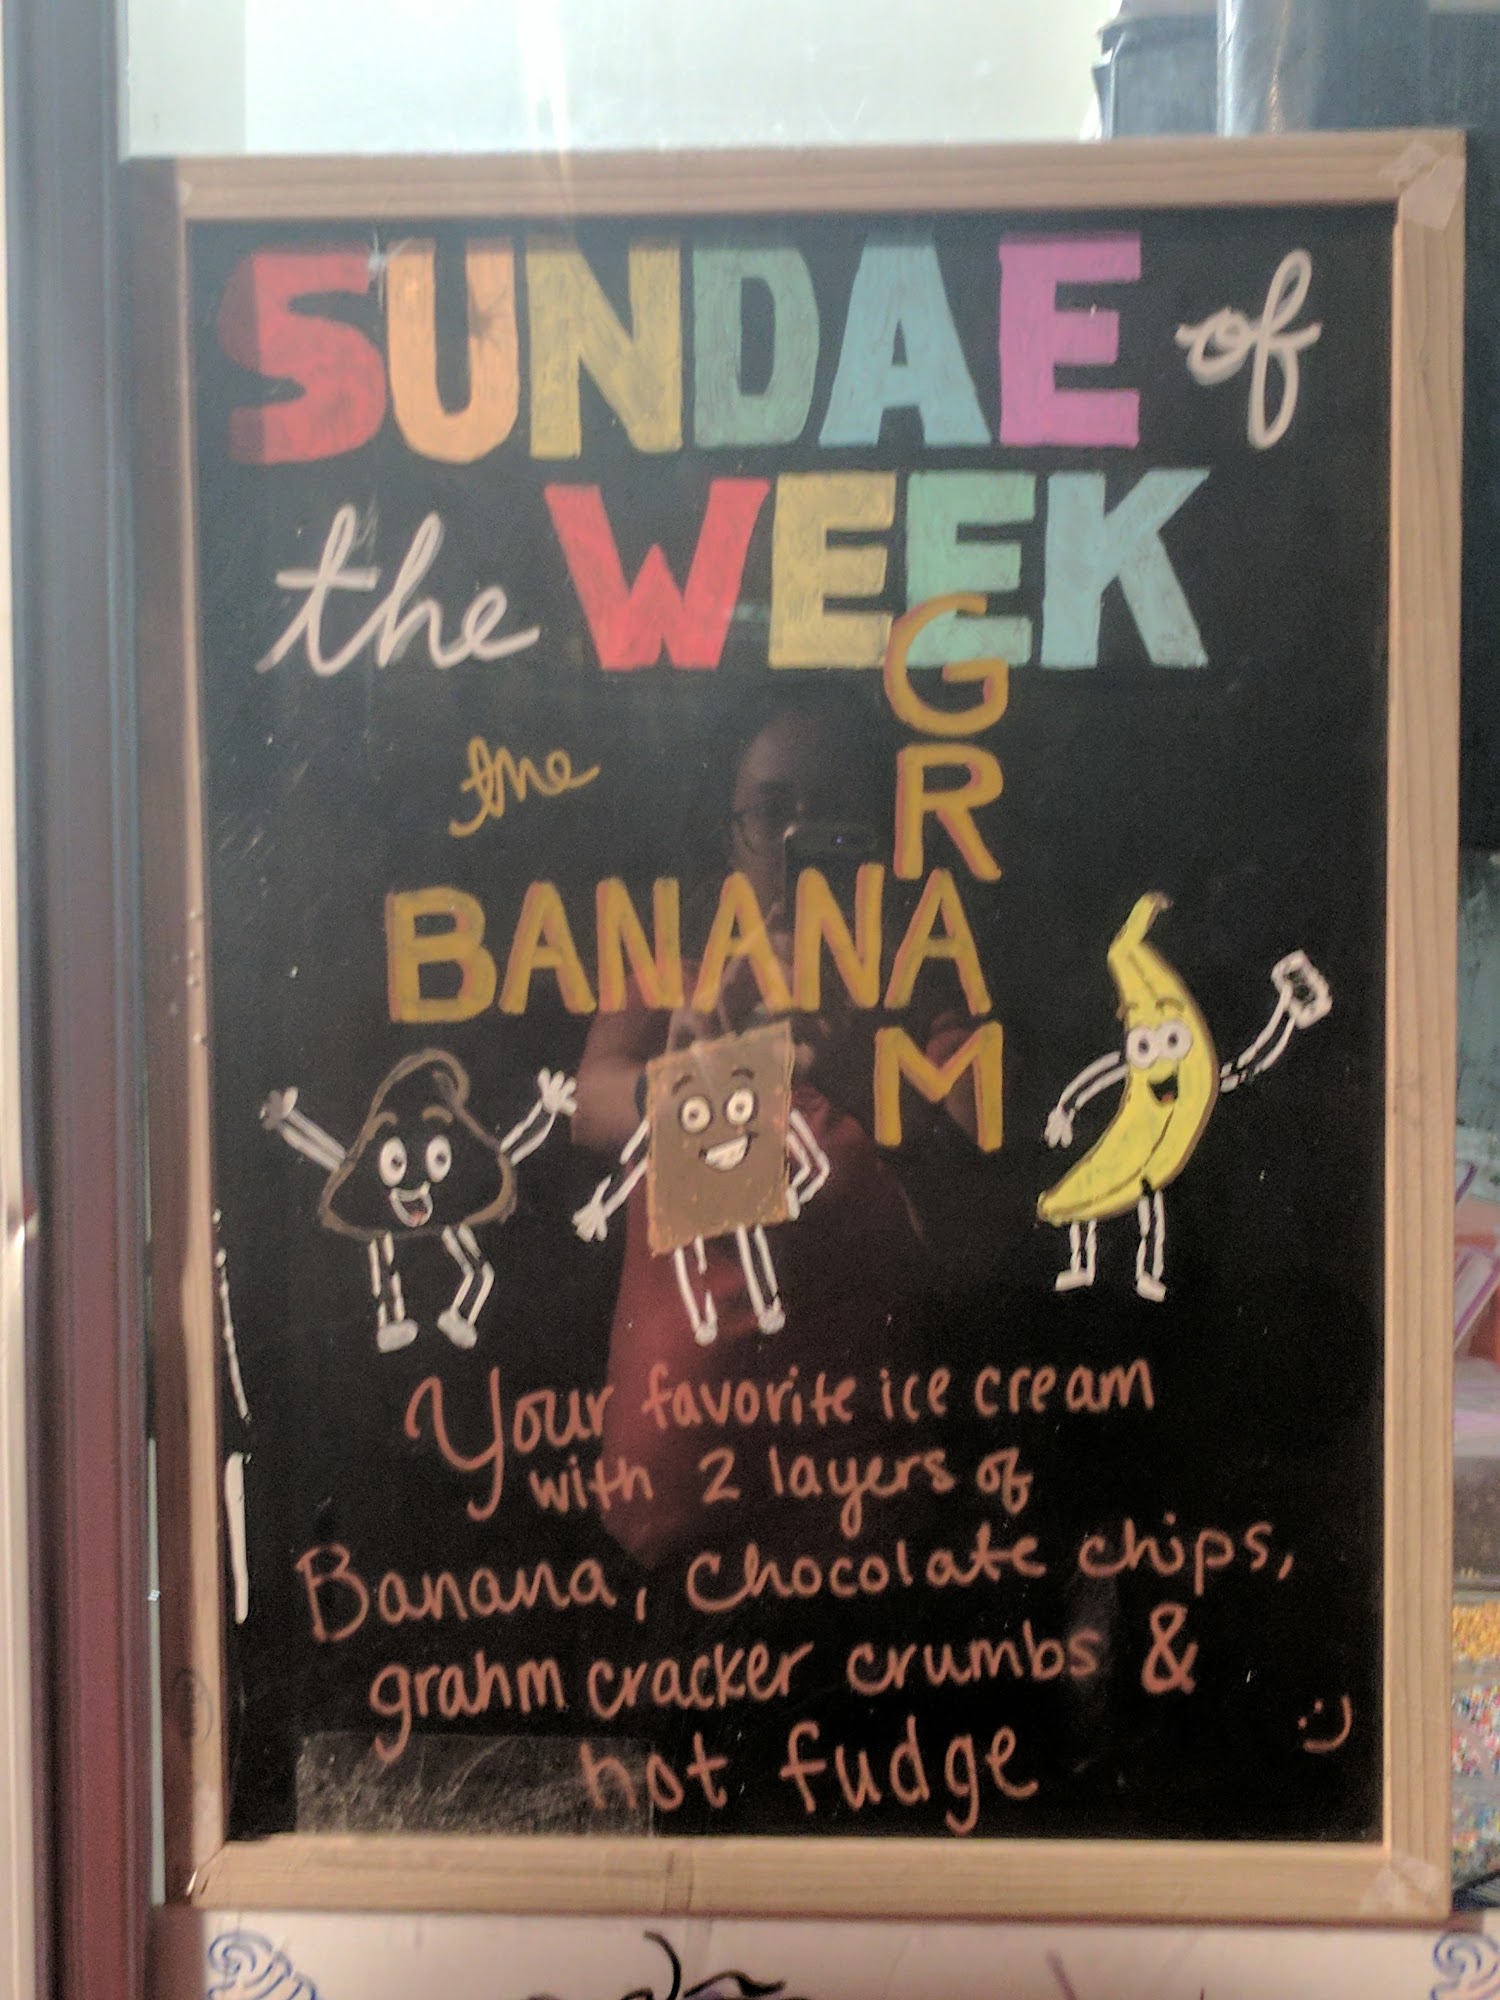 SUNDAE of
the WEEK
the
G
R
BANANA
M
Your favorite ice cream
with 2 layers of
Banana, Chocolate chips,
grahm cracker crumbs &
hot fudge
:)